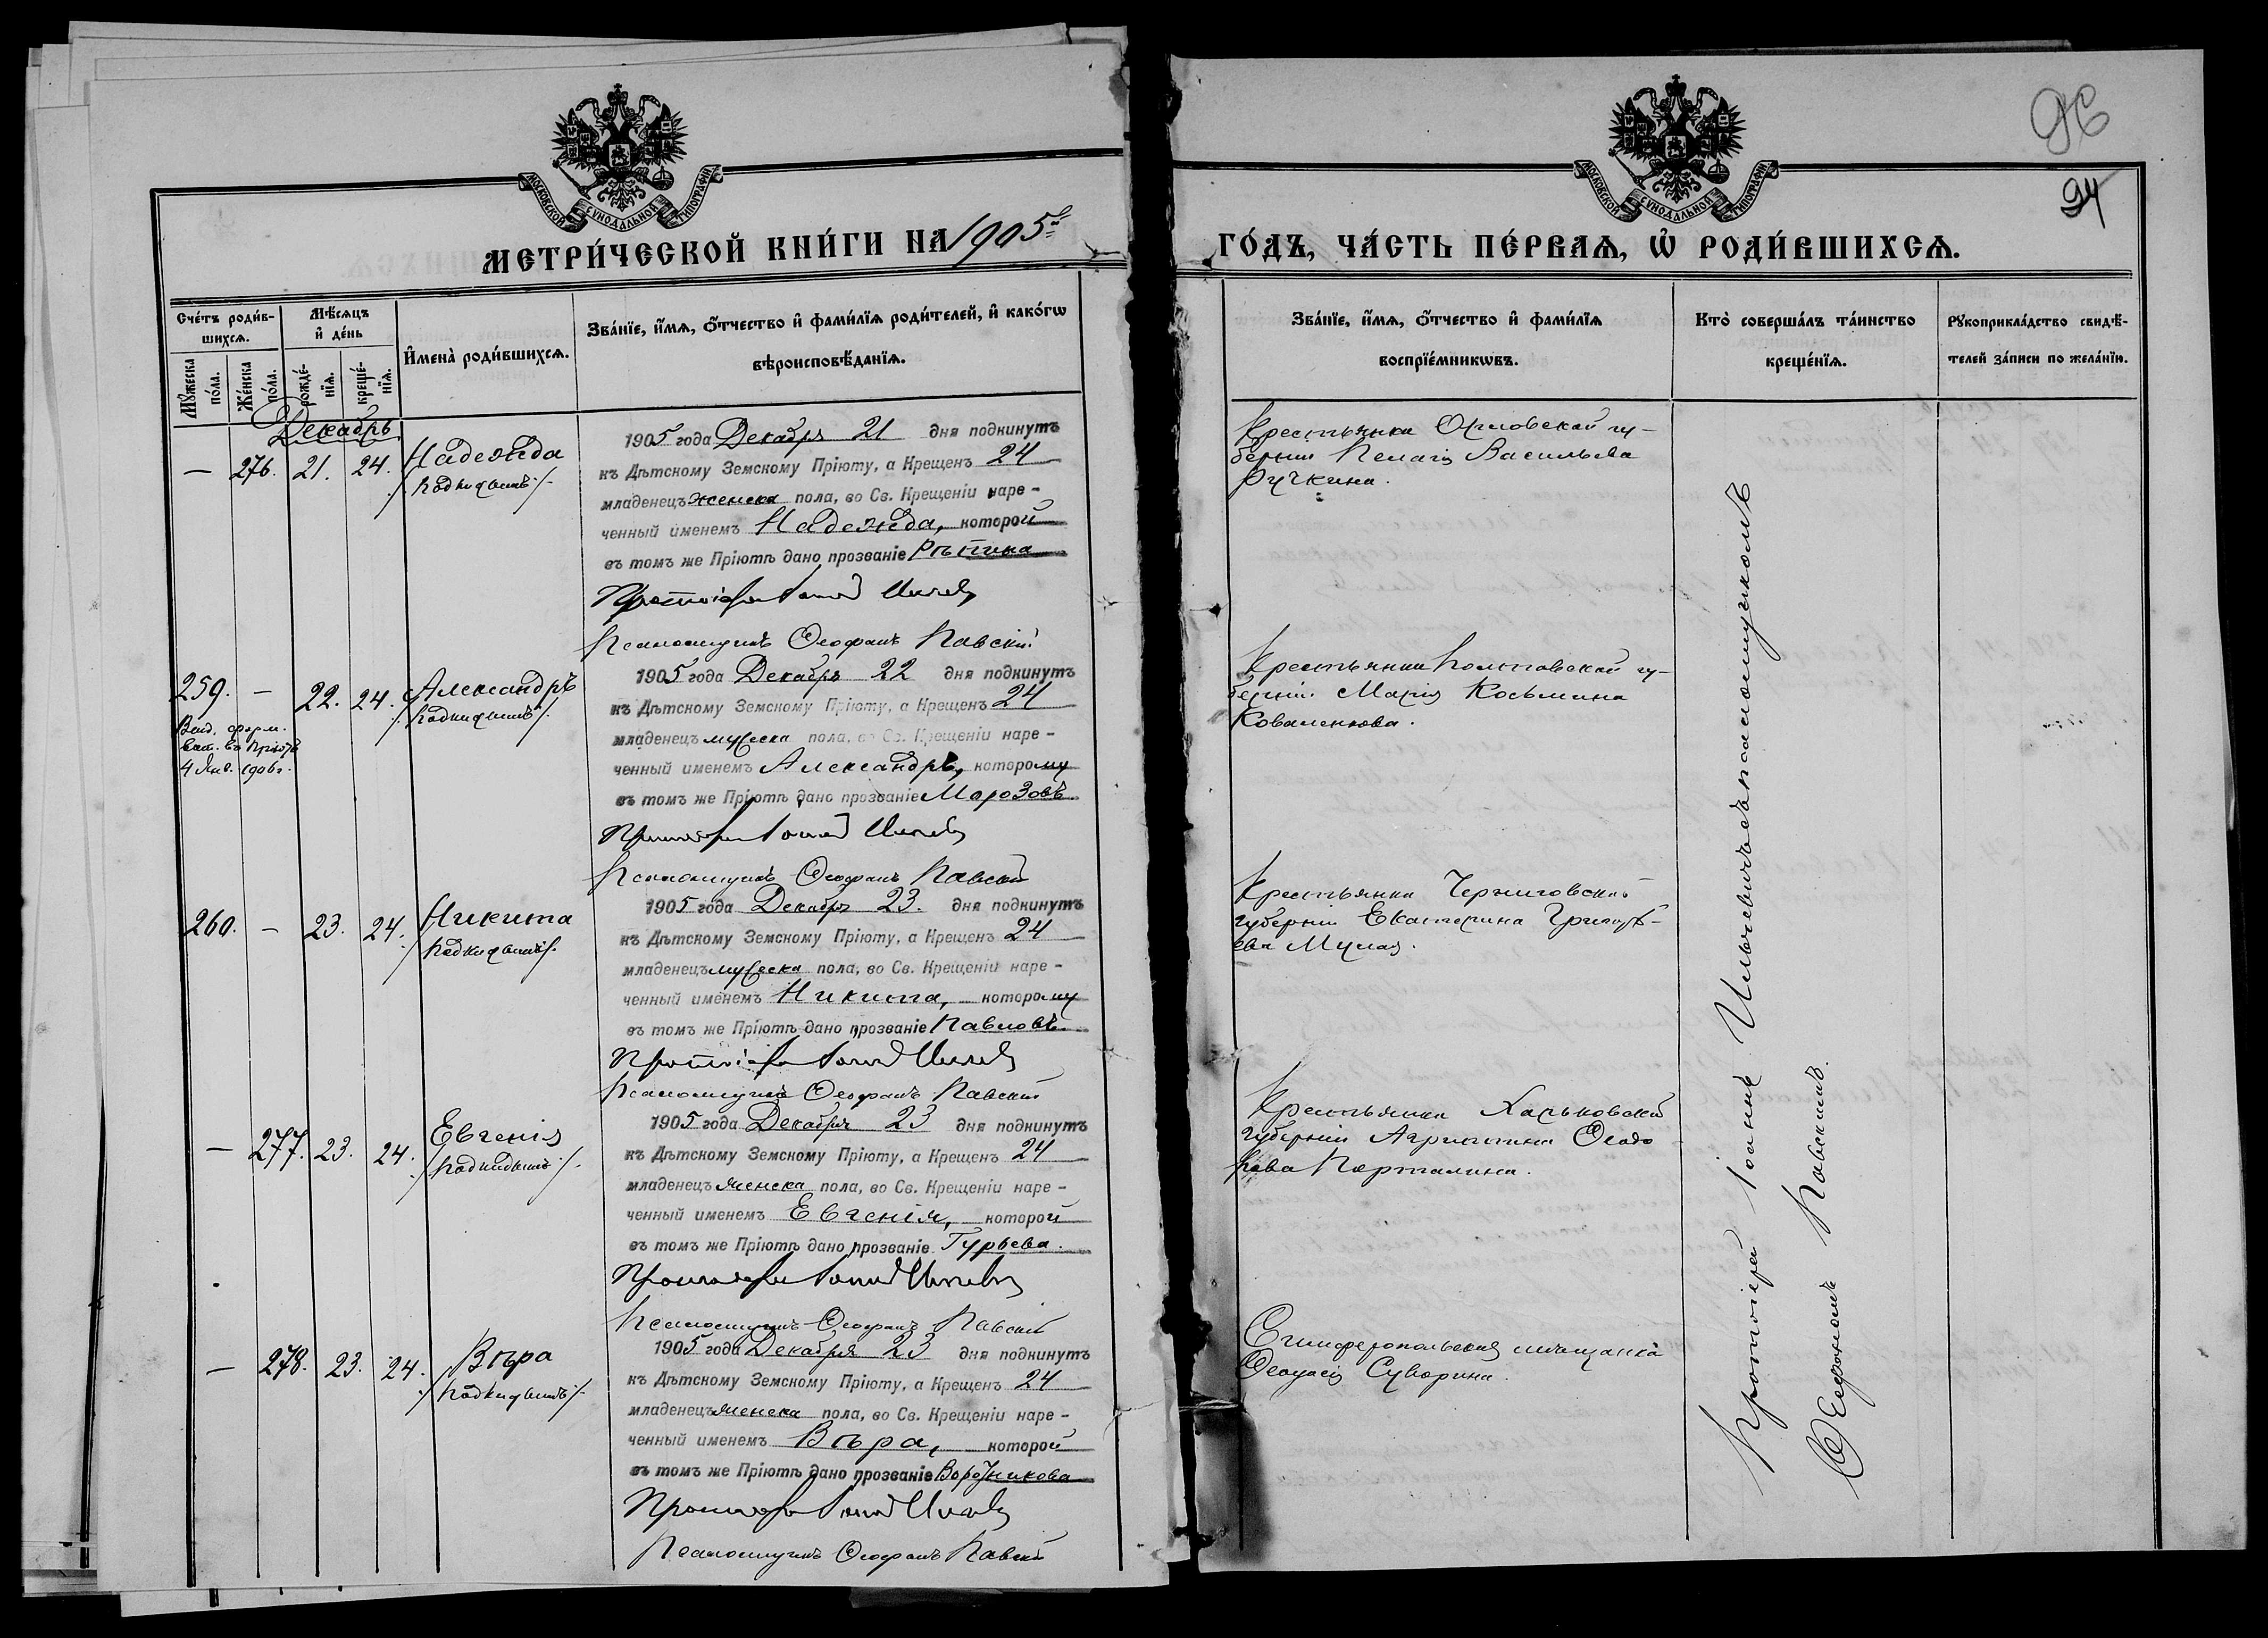 96
94
МОСКОВСКОЙ СѴНОДАЛЬНОЙ ТИПОГРАФІИ
МОСКОВСКОЙ СѴНОДАЛЬНОЙ ТИПОГРАФІИ
МЕТРИ́ЧЕСКОЙ КНИ́ГИ НА 1905 г.
ГО́ДЪ, ЧА́СТЬ ПЕ́РВАѦ, Ѡ҆ РОДИ́ВШИХСѦ.
Сче́тъ роди́в-
шихсѧ.
Мѣ́сѧцъ
и҆ де́нь
Мꙋ́жеска
по́ла.
Же́нска
по́ла.
рожде́-
нїѧ.
креще́-
нїѧ.
И҆мена̀ роди́вшихсѧ.
Зва́нїе, и҆́мѧ, ѻ҆́тчество и҆ фами́лїѧ роди́телей, и҆ како́гѡ
вѣроисповѣ́данїѧ.
Зва́нїе, и҆́мѧ, ѻ҆́тчество и҆ фами́лїѧ
воспрїе́мникѡвъ.
Кто̀ соверша́лъ та́инство
креще́нїѧ.
Рꙋкоприкла́дство свидѣ́-
телей за́писи по жела́нїю.
Декабрь
— 276. 21. 24. Надежда
/:подкидышъ:/
1905 года Декабря 21 дня подкинутъ
къ Дѣтскому Земскому Пріюту, а Крещенъ 24
младенецъ женска пола, во Св. Крещеніи наре-
ченный именемъ Надежда, которой
въ томъ же Пріютѣ дано прозваніе Рѣпина
Протоіерей Іоаннъ
Псаломщикъ Ѳеофанъ Павскій
Крестьянка Орловской гу-
берніи Пелагія Васильева
Ручкина.
259. — 22. 24. Александръ
/:подкидышъ:/
4 Янв. 1906 г.
1905 года Декабря 22 дня подкинутъ
къ Дѣтскому Земскому Пріюту, а Крещенъ 24
младенецъ мужеска пола, во Св. Крещеніи наре-
ченный именемъ Александръ, которому
въ томъ же Пріютѣ дано прозваніе Морозовъ
Протоіерей Іоаннъ
Псаломщикъ Ѳеофанъ Павскій
Крестьянка Полтавской гу-
берніи Марія Косьмина
Коваленкова.
260. — 23. 24. Никита
/:подкидышъ:/
1905 года Декабря 23. дня подкинутъ
къ Дѣтскому Земскому Пріюту, а Крещенъ 24
младенецъ мужеска пола, во Св. Крещеніи наре-
ченный именемъ Никита, которому
въ томъ же Пріютѣ дано прозваніе Павловъ
Протоіерей Іоаннъ
Псаломщикъ Ѳеофанъ Павскій
Крестьянка Черниговской
губерніи Екатерина Григорь-
ева
— 277. 23. 24. Евгенія
/:подкидышъ:/
1905 года Декабря 23 дня подкинутъ
къ Дѣтскому Земскому Пріюту, а Крещенъ 24
младенецъ женска пола, во Св. Крещеніи наре-
ченный именемъ Евгенія, которой
въ томъ же Пріютѣ дано прозваніе Гурьева.
Протоіерей Іоаннъ
Псаломщикъ Ѳеофанъ Павскій
Крестьянка Харьковской
губерніи Агрипина
— 278. 23. 24. Вѣра
/:подкидышъ:/
1905 года Декабря 23 дня подкинутъ
къ Дѣтскому Земскому Пріюту, а Крещенъ 24
младенецъ женска пола, во Св. Крещеніи наре-
ченный именемъ Вѣра, которой
въ томъ же Пріютѣ дано прозваніе Воротникова
Протоіерей Іоаннъ
Псаломщикъ Ѳеофанъ Павскій
Симферопольская мѣщанка
Суворина.
Протоіерей Іоаннъ съ псаломщикомъ
Павскимъ.